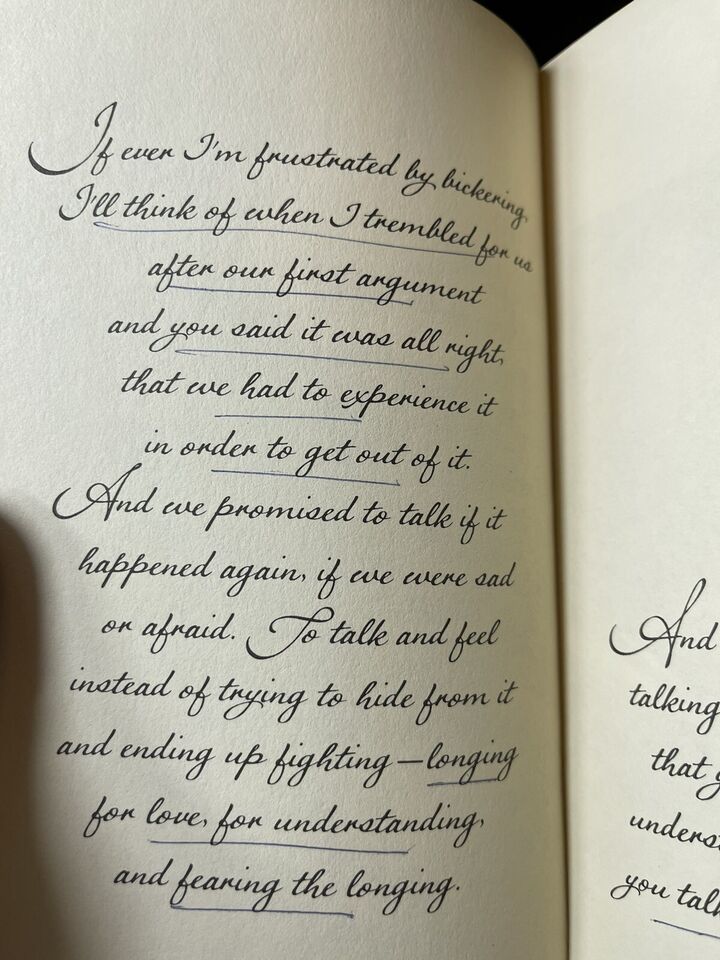 If ever I'm frustrated by bickering,
I'll think of when I trembled for us
after our first argument
and you said it was all right,
that we had to experience it
in order to get out of it.
And we promised to talk if it
happened again, if we were sad
or afraid. To talk and feel
instead of trying to hide from it
and ending up fighting—longing
for love, for understanding,
and fearing the longing.
And
talking
that
you